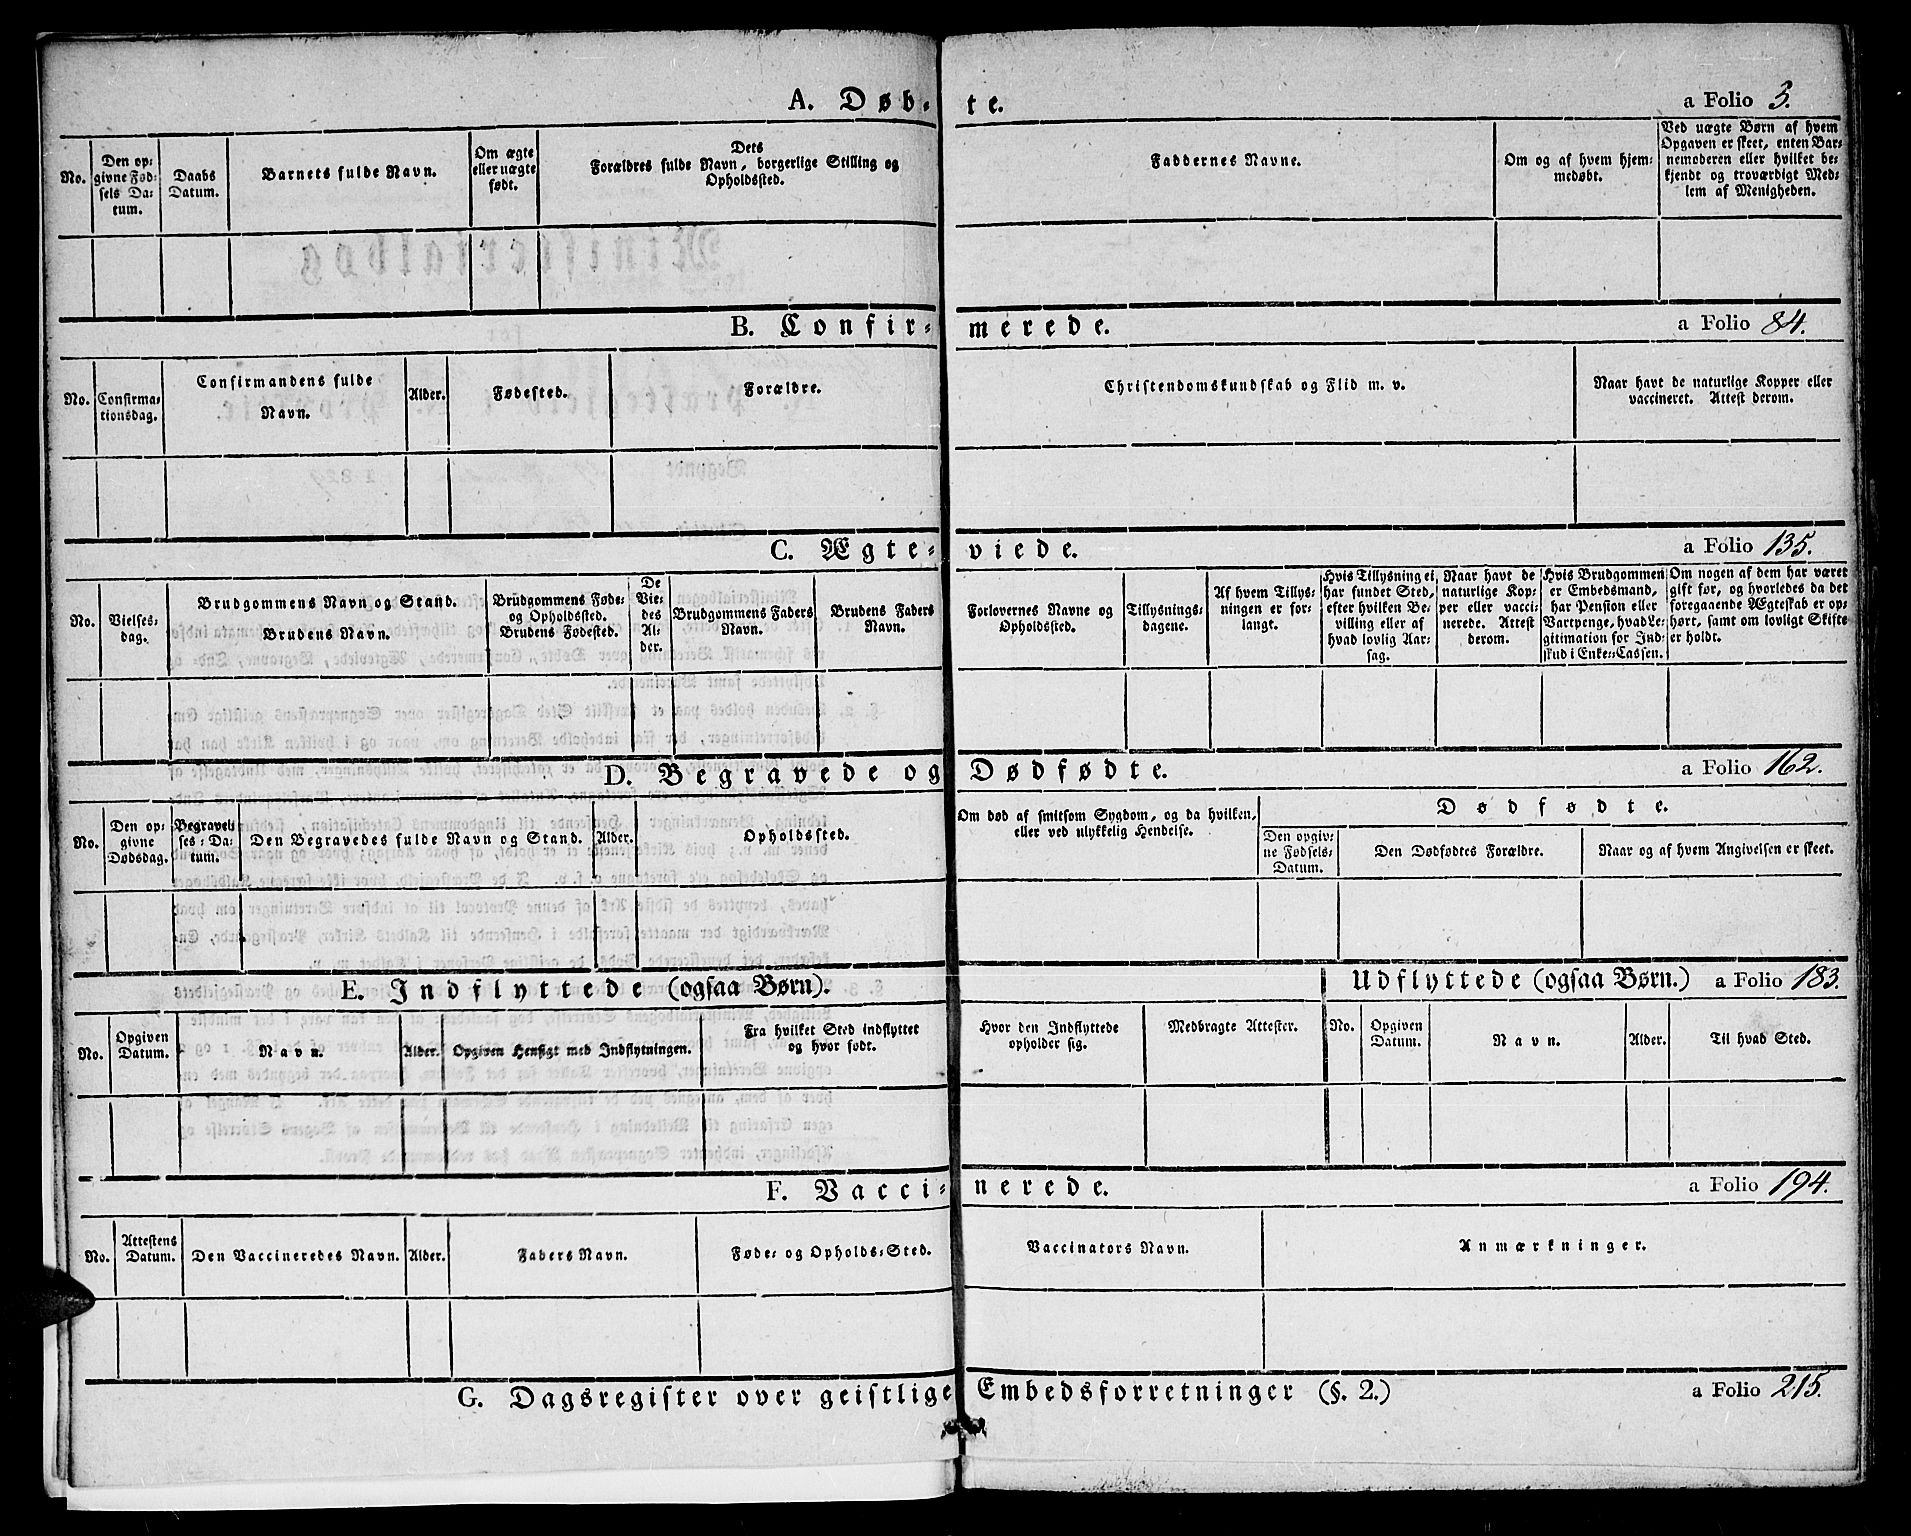 A. Døb- te. a Folio 3.
No.
Den op-
givne Fød-
sels Da-
tum.
Daabs
Datum.
Barnets fulde Navn.
Om ægte
eller uægte
født.
Dets
Forældres fulde Navn, borgerlige Stilling og
Opholdssted.
Faddernes Navne.
Om og af hvem hjem-
medøbt.
Ved uægte Børn af hvem
Opgaven er skeet, enten Bar-
nemoderen eller hvilket be-
kjendt og troværdigt Med-
lem af Menigheden.
B. Confir- merede. a Folio 84.
No.
Confirma-
tionsdag.
Confirmandens fulde
Navn.
Alder.
Fødested.
Forældre.
Christendomskundskab og Flid m. v.
Naar havt de naturlige Kopper eller
vaccineret. Attest derom.
C. Ægte- viede. a Folio 135.
No.
Vielses-
dag.
Brudgommens Navn og Stand.
Brudens Navn.
Brudgommens Føde-
og Opholdssted.
Brudens Fødested.
De
Vie-
des
Al-
der.
Brudgommens Faders
Navn.
Brudens Faders
Navn.
Forlovernes Navne og
Opholdssted.
Tillysnings-
dagene.
Af hvem Tillys-
ningen er for-
langt.
Hvis Tillysning ei
har fundet Sted,
efter hvilken Be-
villing eller af
hvad lovlig Aar-
sag.
Naar havt de
naturlige Kop-
per eller vacci-
nerede. Attest
derom.
Hvis Brudgommen
er Embedsmand,
har Pension eller
Vartpenge, hvad Le-
gitimation for Ind-
skud i Enke-Cassen.
Om nogen af dem har været
gift før, og hvorledes da det
foregaaende Ægteskab er op-
hørt, samt om lovligt Skifte
er holdt.
D. Begravede og Dødfødte. a Folio 162.
No.
Den op-
givne
Dødsdag.
Begravel-
ses-Da-
tum.
Den Begravedes fulde Navn og Stand.
Alder.
Opholdssted.
Om død af smitsom Sygdom, og da hvilken,
eller ved ulykkelig Hendelse.
Dødfødte.
Den opgiv-
ne Fødsels-
Datum.
Den Dødfødtes Forældre.
Naar og af hvem Angivelsen er skeet.
E. Indflyttede (ogsaa Børn). Udflyttede (ogsaa Børn.) a Folio 183.
No.
Opgiven
Datum.
Navn.
Alder.
Opgiven Hensigt med Indflytningen.
Fra hvilket Sted indflyttet
og hvor født.
Hvor den Indflyttede
opholder sig.
Medbragte Attester.
No.
Opgiven
Datum.
Navn.
Alder.
Til hvad Sted.
F. Vacci- nerede. a Folio 194.
No.
Attestens
Datum.
Den Vaccineredes Navn.
Alder.
Faders Navn.
Føde- og Opholds-Sted.
Vaccinators Navn.
Anmærkninger.
G. Dagsregister over geistlige Embedsforretninger (§. 2.) a Folio 215.